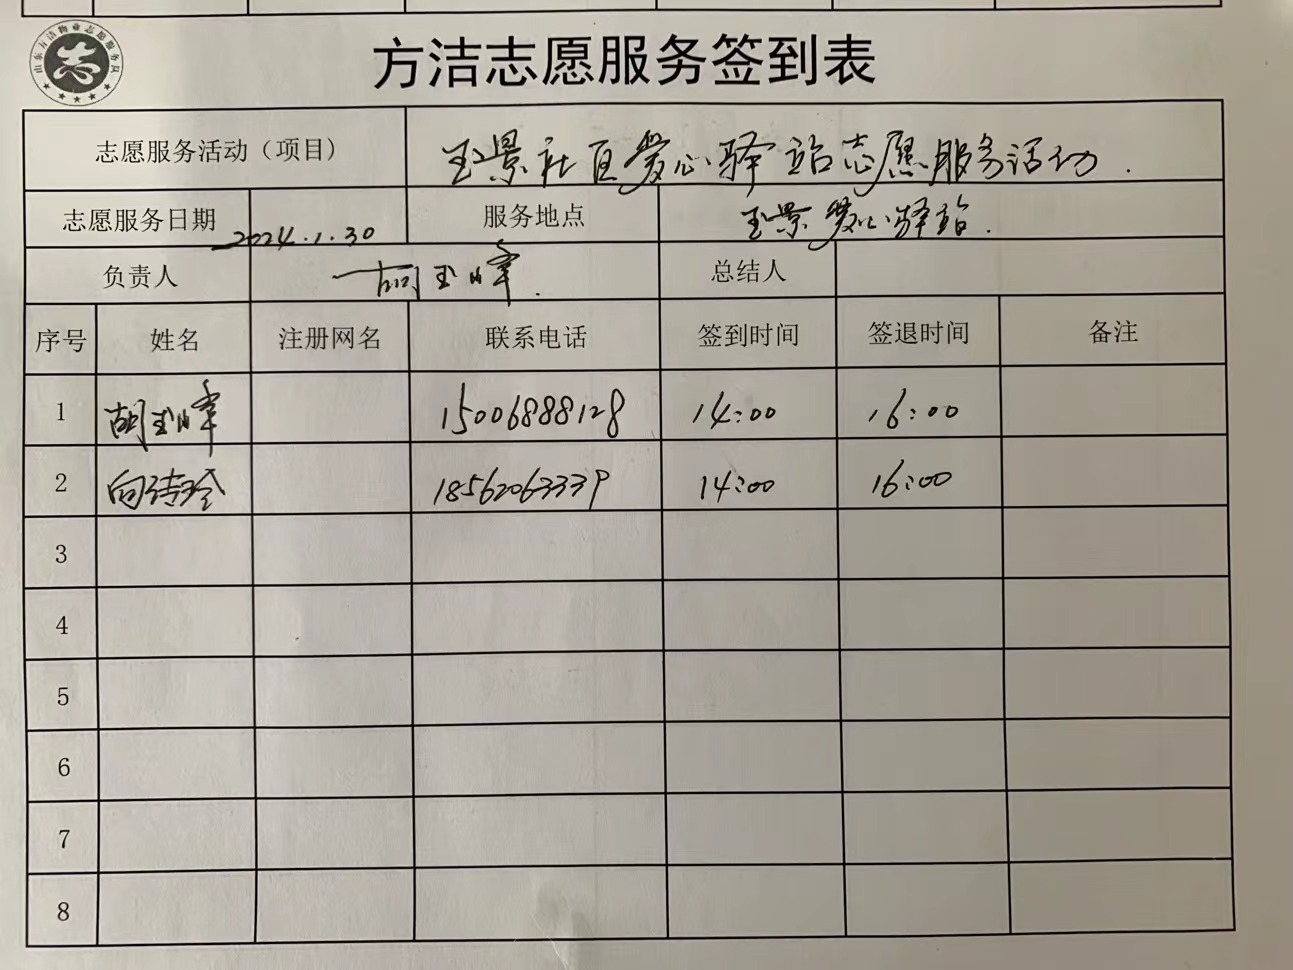 山东方洁物业志愿服务队
志
方洁志愿服务签到表
志愿服务活动（项目） 玉景社区爱心驿站志愿服务活动.
志愿服务日期 2024.1.30 服务地点 玉景爱心驿站.
负责人 胡玉峰. 总结人
序号 姓名 注册网名 联系电话 签到时间 签退时间 备注
1 胡玉峰 15006888128 14:00 16:00
2 向 18562063339 14:00 16:00
3
4
5
6
7
8